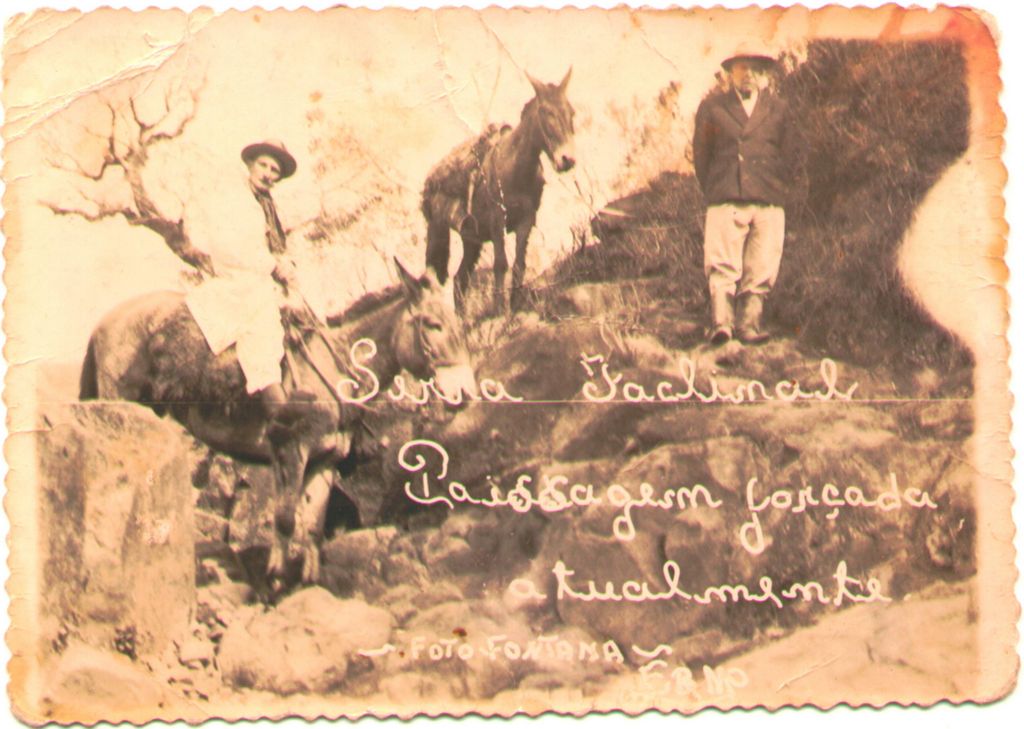 Serra Faxinal
Paissagem forçada
atualmente.
~ FOTO FONTANA ~